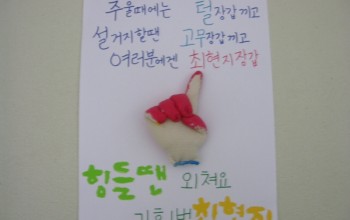 추울때에는 털장갑 끼고
설거지할땐 고무장갑 끼고
여러분에겐 최현지장갑
힘들땐 외쳐요
기호1번 최현지